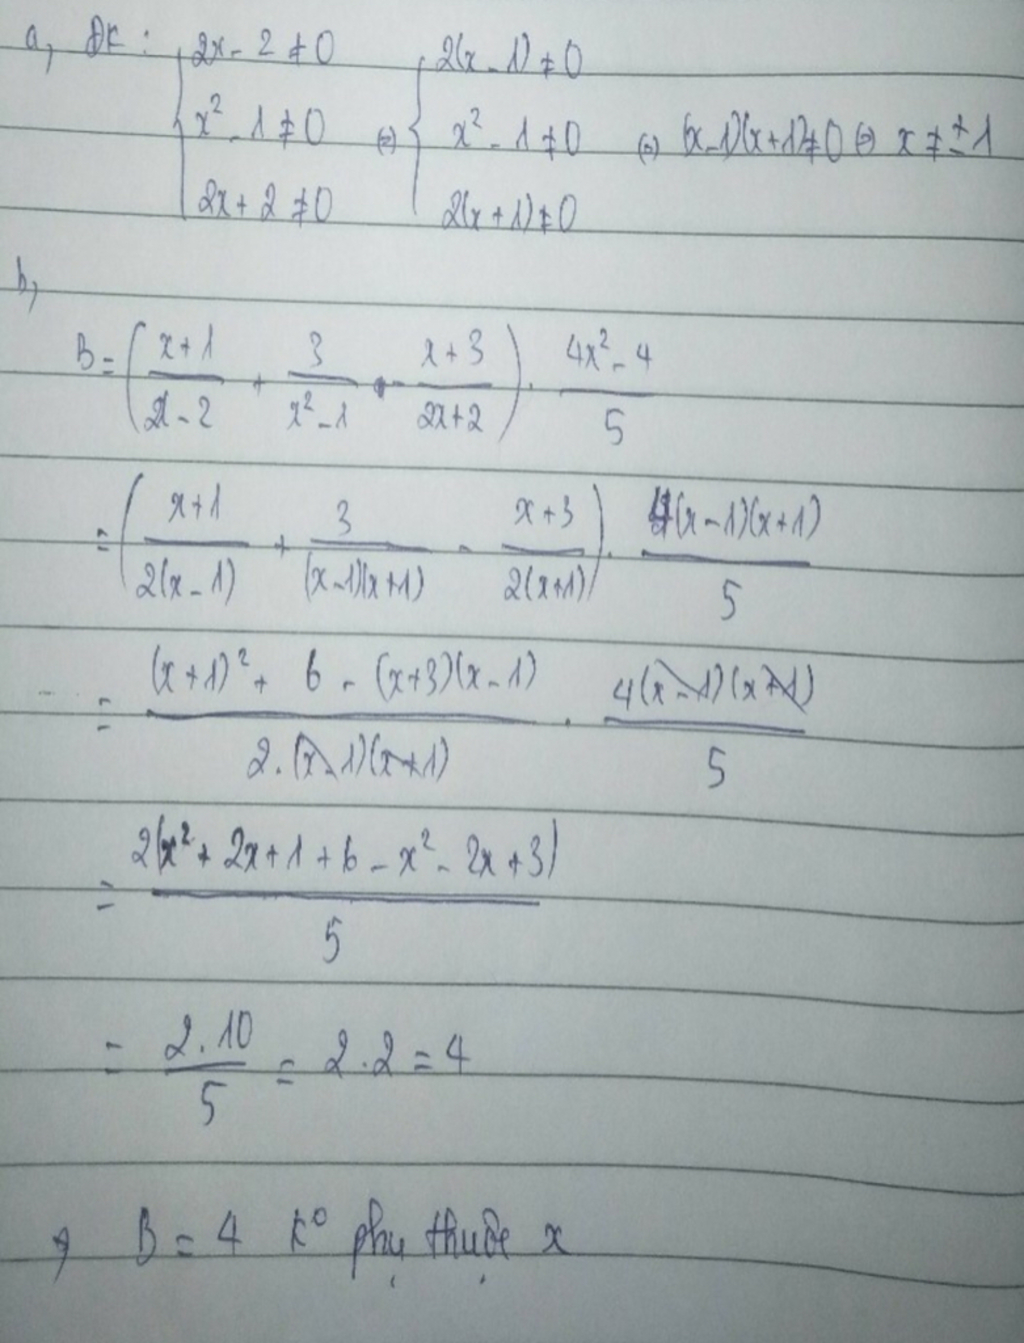 a, ĐK: { 2x - 2 ≠ 0 ; x² - 1 ≠ 0 ; 2x + 2 ≠ 0 ⇔ { 2(x - 1) ≠ 0 ; x² - 1 ≠ 0 ; 2(x + 1) ≠ 0 ⇔ (x-1)(x+1) ≠ 0 ⇔ x ≠ ± 1
b,
B = ( (x+1)/(2x-2) + 3/(x²-1) - (x+3)/(2x+2) ) . (4x²-4)/5
= ( (x+1)/(2(x-1)) + 3/((x-1)(x+1)) - (x+3)/(2(x+1)) ) . 4(x-1)(x+1)/5
= ((x+1)² + 6 - (x+3)(x-1))/(2.(x-1)(x+1)) . 4(x-1)(x+1)/5
= 2(x² + 2x + 1 + 6 - x² - 2x + 3)/5
= 2.10/5 = 2.2 = 4
⇒ B = 4 k° phụ thuộc x